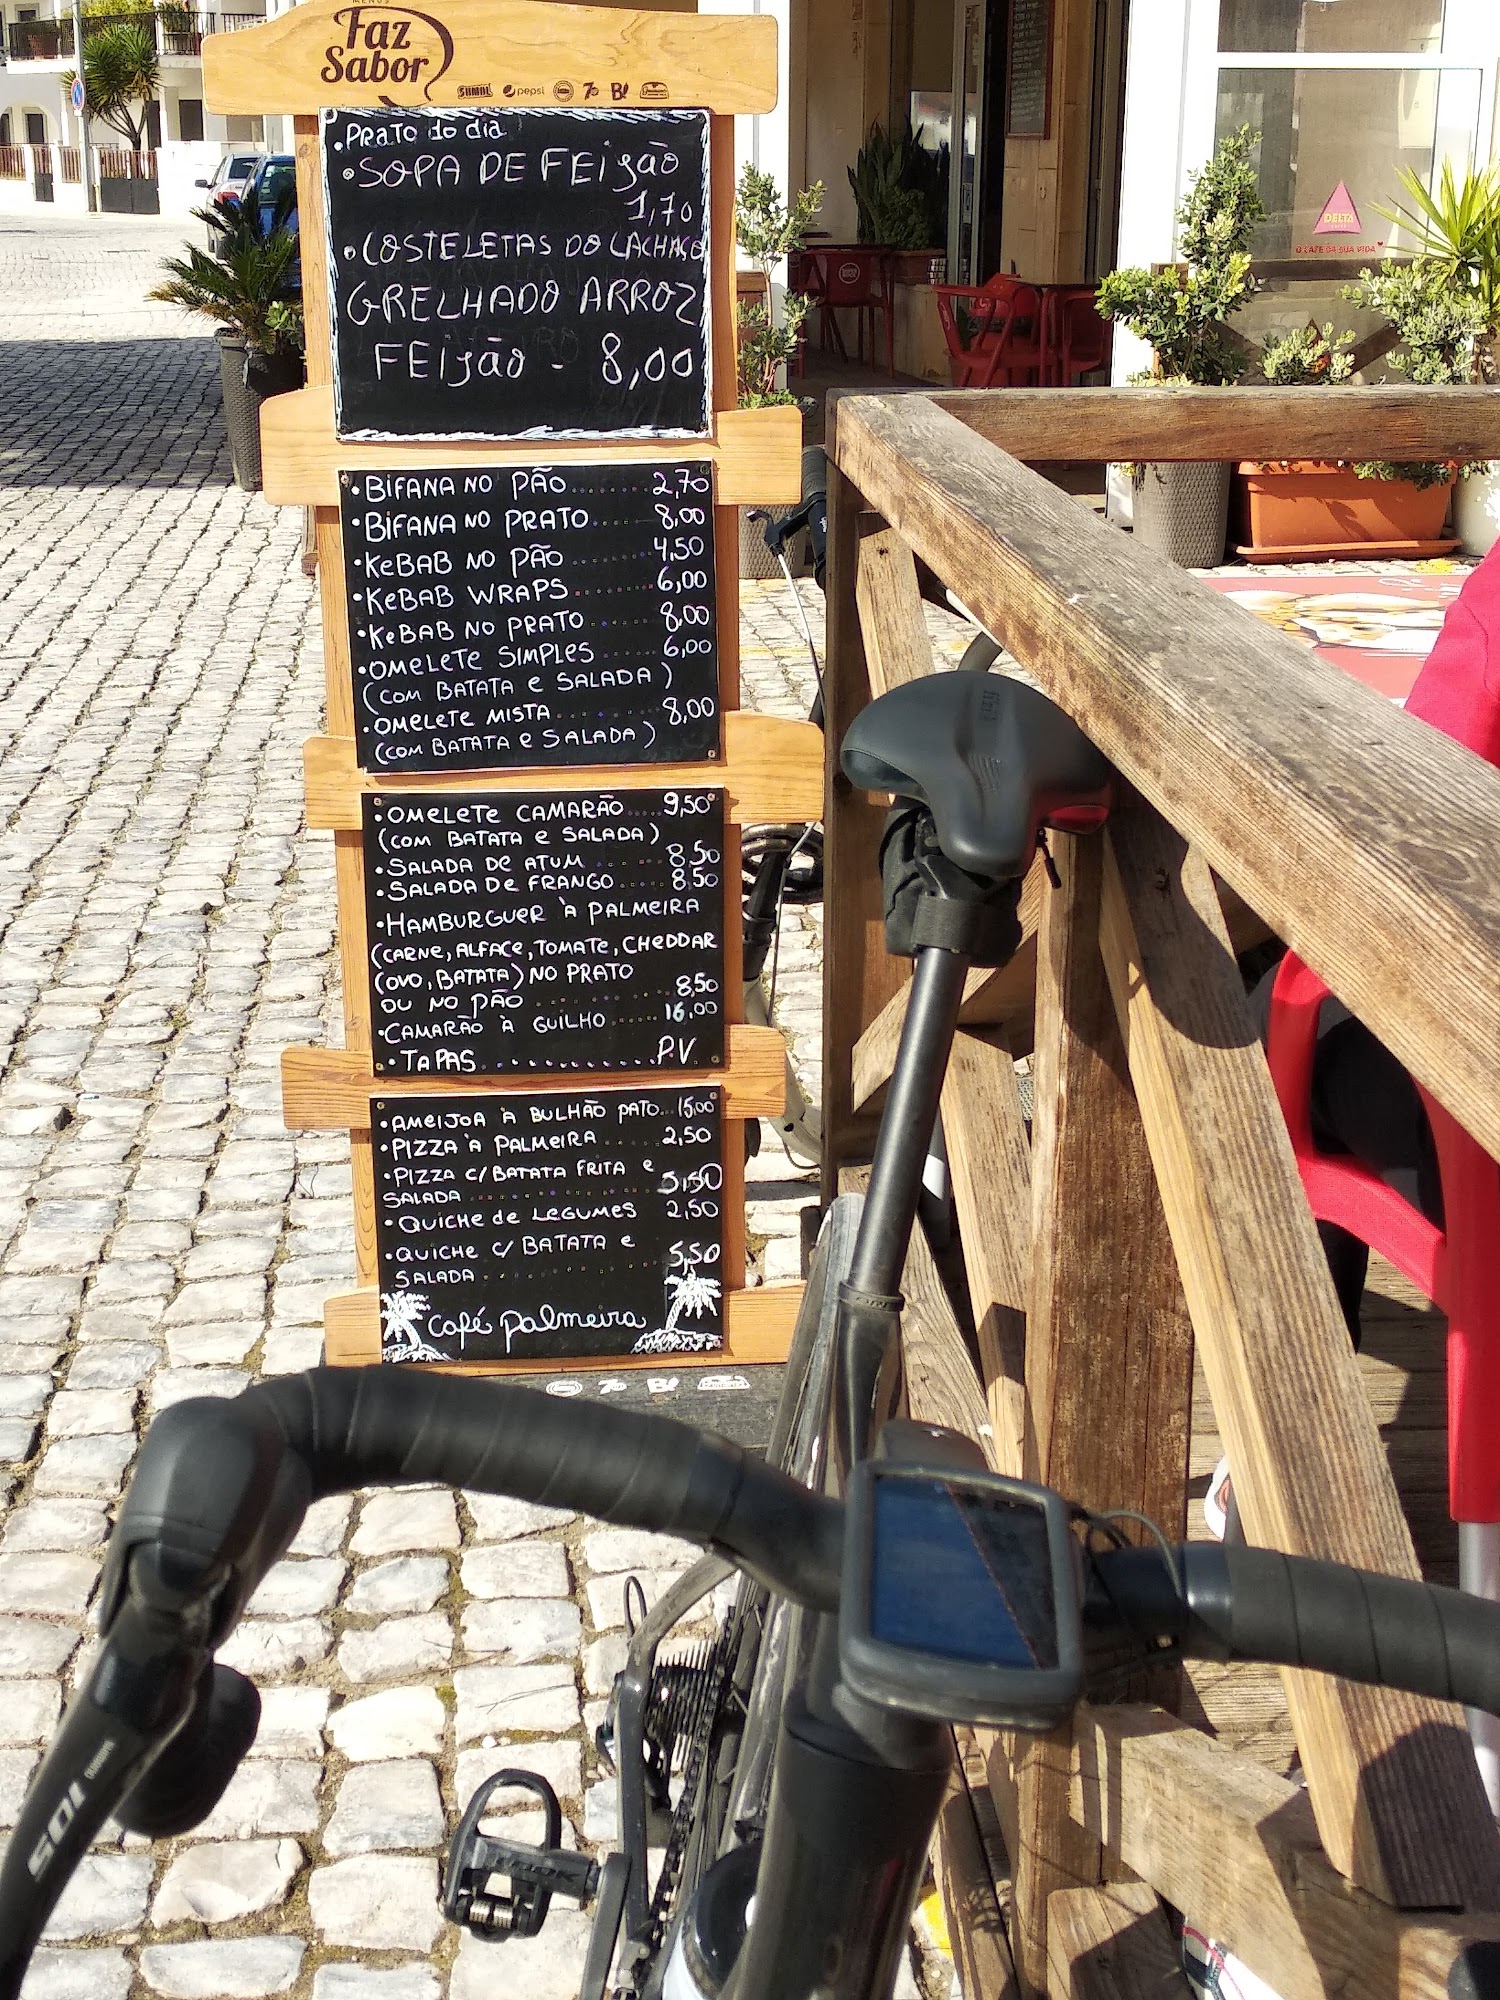 MENUS
Faz
Sabor
SUMOL pepsi 7up B!
• Prato do dia
• SOPA DE FEijão
1,70
• COSTELETAS DO CACHAÇO
GRELHADO ARROZ
FEIjão - 8,00
• BIFANA NO PÃO........2,70
• BIFANA NO PRATO......8,00
• KeBAB NO PÃO ........4,50
• KeBAB WRAPS.........6,00
• KeBAB NO PRATO ......8,00
• OMELETE SIMPLES......6,00
(COM BATATA e SALADA )
• OMELETE MISTA........8,00
(COM BATATA e SALADA )
• OMELETE CAMARÃO.....9,50
(COM BATATA e SALADA)
• SALADA DE ATUM ......8,50
• SALADA DE FRANGO .....8,50
• HAMBURGUER À PALMEIRA
(CARNE, ALFACE, TOMATE, CHEDDAR
(OVO, BATATA) NO PRATO
OU NO PÃO ............8,50
• CAMARÃO À GUILHO ......16,00
• TAPAS............P.V
• AMEIJOA À BULHÃO PATO...15,00
• PIZZA À PALMEIRA ......2,50
• PIZZA C/BATATA FRITA e
SALADA ..............5,50
• QUICHE de LEGUMES 2,50
• QUICHE C/ BATATA e
SALADA..............5,50
Café palmeira
DELTA
O CAFÉ DA SUA VIDA
7up B!
SHIMANO
105